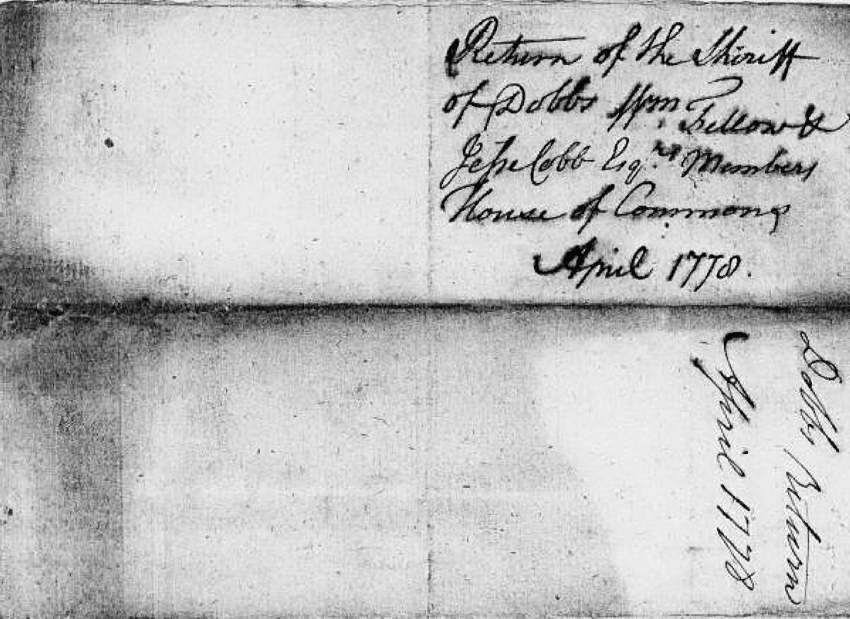 Return of the Sheriff
of Dobbs Wm Fellow &
Jesse Cobb Esqrs. Members
House of Commons
April 1778.
Dobbs Return
April 1778